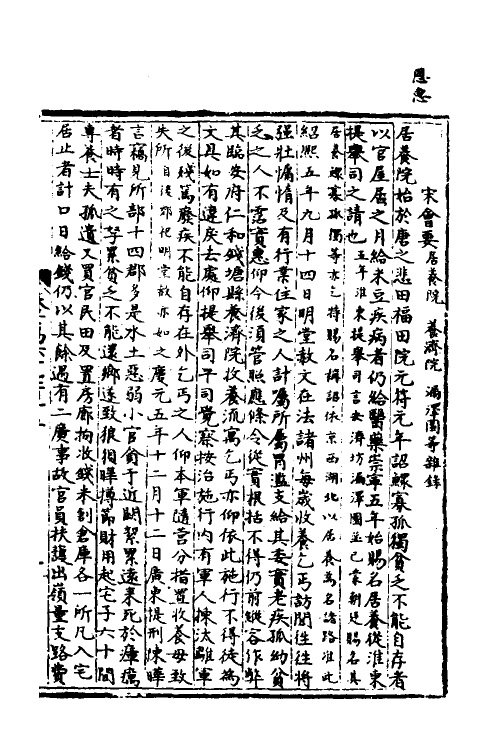 恩惠
宋會要 居養院 養濟院 漏澤園等雜錄
居養院始於唐之悲田福田院元符元年詔鰥寡孤獨貧乏不能自存者
以官屋居之月給米豆疾病者仍給醫藥崇寧五年始賜名居養從淮東
提舉司之請也五年淮東提舉司言安濟坊漏澤園並已蒙朝廷賜名其
居養鰥寡孤獨等亦乞特賜名稱詔依京西湖北以居養為名諸路准此
紹熙五年九月十四日明堂赦文在法諸州每歲收養乞丐訪聞往往將
強壯惰及有行業住家之人計囑所屬冒濫支給其委實老疾孤幼貧
乏之人不霑實惠仰今後須管照應條令從實根括不得仍前縱容作弊
其臨安府仁和錢塘縣養濟院收養流寓乞丐亦仰依此施行不得徒為
文具如有違戾去處仰提舉司平司覺察按治施行內有軍人揀汰離軍
之後殘篤廢疾不能自存在外乞丐之人仰本軍隨營分措置收養毋致
失所自後郊祀明堂赦亦如之慶元五年十二月十二日廣東提刑陳曄
言竊見所部十四郡多是水土惡弱小官貪于近闕挈累遠來死於瘴癘
者時時有之孥累貧乏不能還鄉遂致狼狽曄撙節財用起宅子六十間
專養士夫孤遺又買官民田及置房廊拘收錢米創倉庫各一所凡入宅
居止者計口日給錢仍以其餘遇有二廣事故官員扶護出嶺量支路費